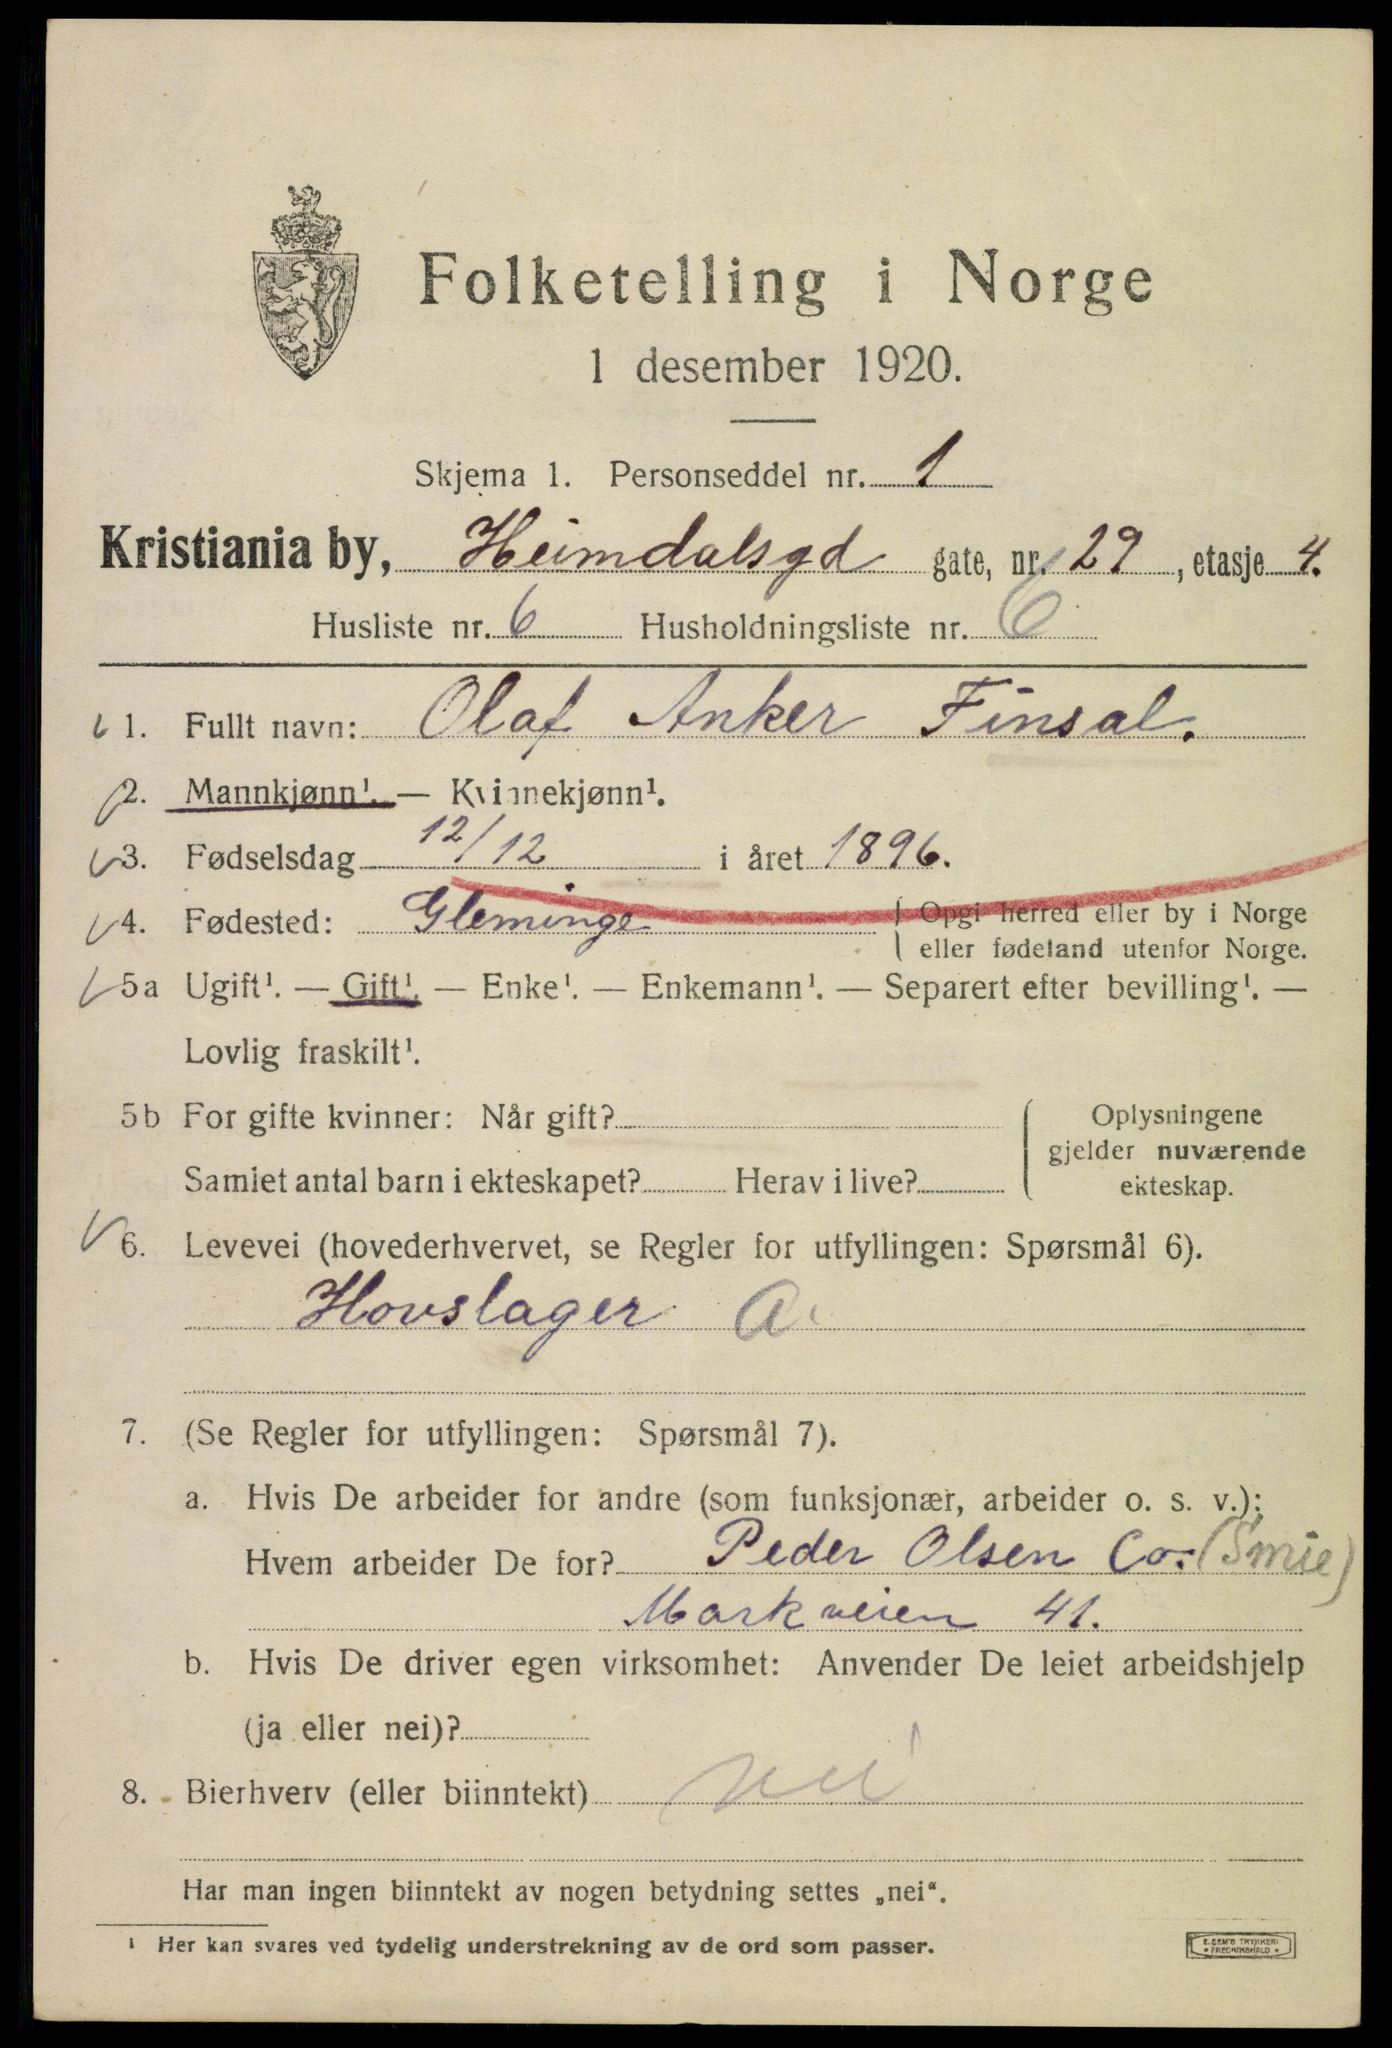 Folketelling i Norge
1 desember 1920.
Skjema 1. Personseddel nr. 1
Kristiania by, Heimdalsgd gate, nr. 29, etasje 4.
Husliste nr. 6 Husholdningsliste nr. 6
1. Fullt navn: Olaf Anker Finsal.
2. Mannkjønn¹. — Kvinnekjønn¹.
3. Fødselsdag 12/12 i året 1896.
4. Fødested: Gleminge { Opgi herred eller by i Norge
eller fødeland utenfor Norge.
5a Ugift¹. — Gift¹. — Enke¹. — Enkemann¹. — Separert efter bevilling¹. —
Lovlig fraskilt¹.
5b For gifte kvinner: Når gift? { Oplysningene
gjelder nuværende
Samlet antal barn i ekteskapet? Herav i live? ekteskap.
6. Levevei (hovederhvervet, se Regler for utfyllingen: Spørsmål 6).
Hovslager A.
7. (Se Regler for utfyllingen: Spørsmål 7).
a. Hvis De arbeider for andre (som funksjonær, arbeider o. s. v.):
Hvem arbeider De for? Peder Olsen Co. (Smie)
Markveien 41.
b. Hvis De driver egen virksomhet: Anvender De leiet arbeidshjelp
(ja eller nei)?
8. Bierhverv (eller biinntekt) nei
Har man ingen biinntekt av nogen betydning settes „nei“.
¹ Her kan svares ved tydelig understrekning av de ord som passer.
E. SEM'S TRYKKERI
FREDRIKSHALD